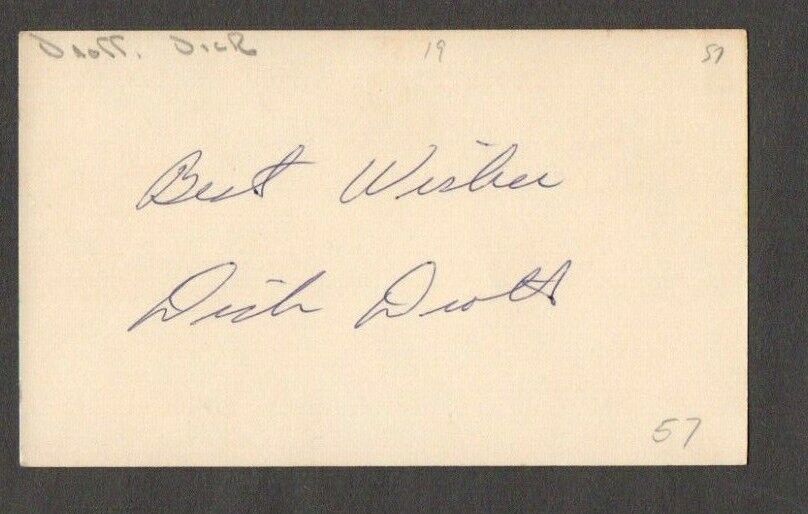 Drott, Dick 19 57
Best Wishes
Dick Drott
57